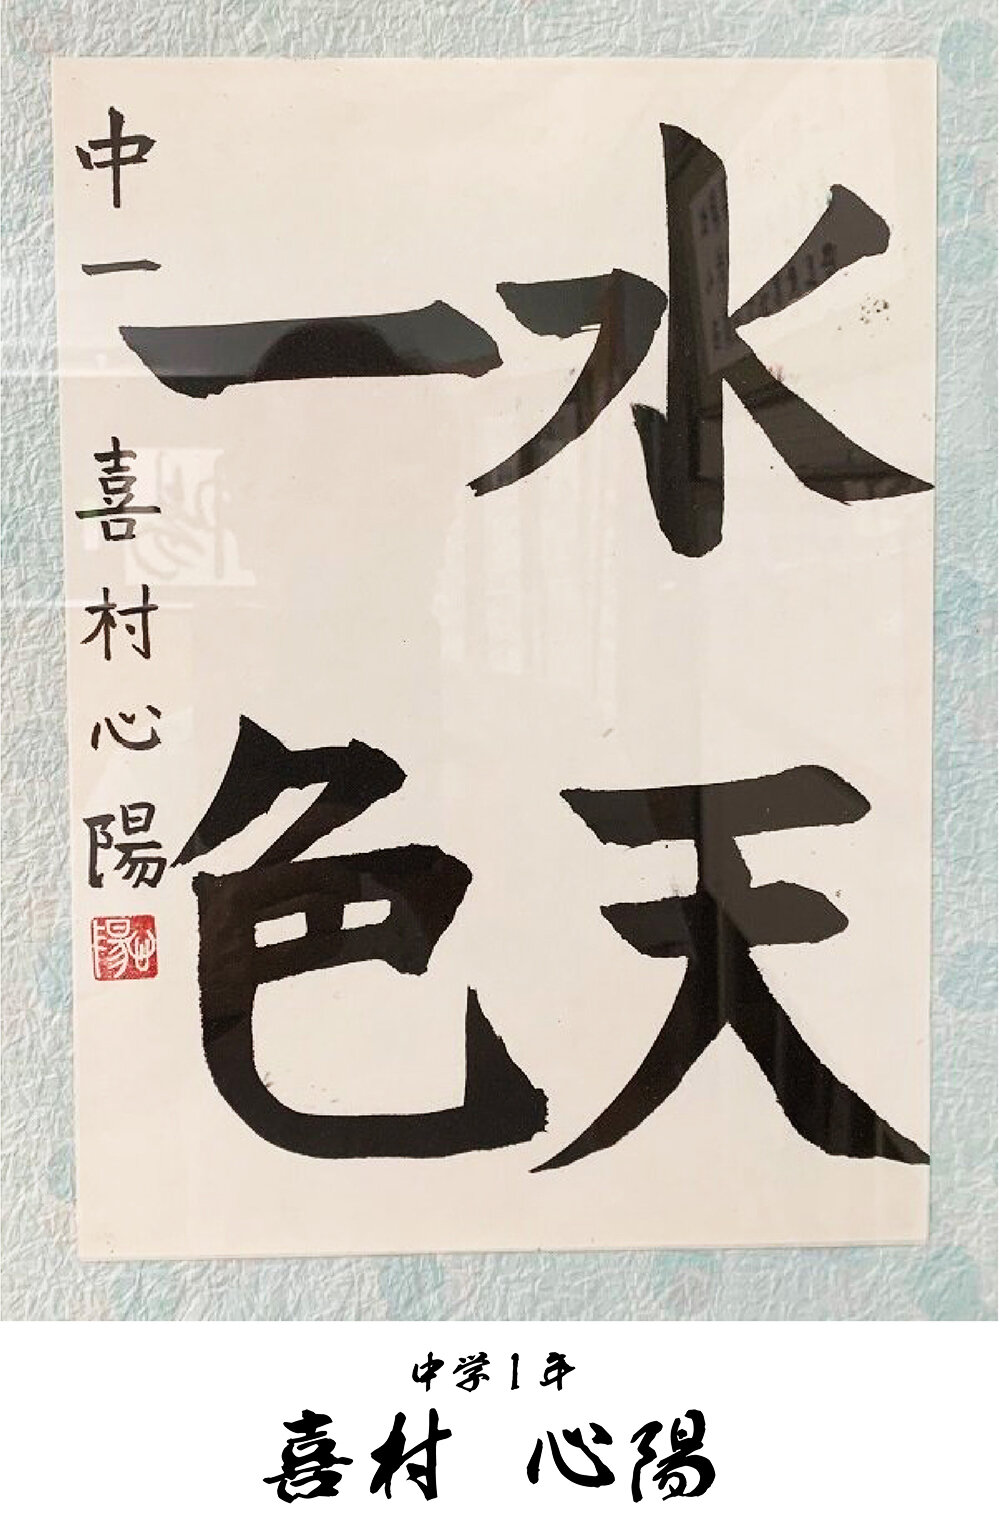 水天
一色
中一 喜村心陽
心陽
中学1年
喜村 心陽